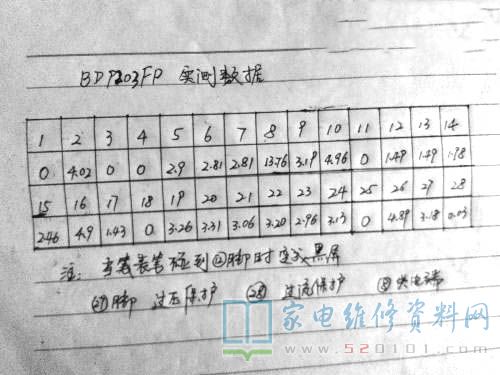 BD9203FP 实测数据
1 2 3 4 5 6 7 8 9 10 11 12 13 14
0 4.02 0 0 2.9 2.81 2.81 13.76 3.19 4.96 0 1.49 1.49 1.98
15 16 17 18 19 20 21 22 23 24 25 26 27 28
2.46 4.9 1.43 0 3.26 3.31 3.06 3.20 2.96 3.13 0 4.89 3.18 0.03
注: 表笔碰到 脚时变成黑屏
㉗脚 过压保护 ㉘ 过流保护 ⑧供电端
家电维修资料网
www.520101.com